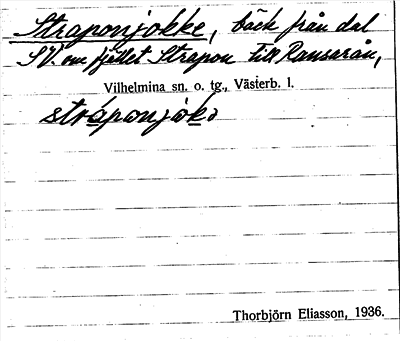 Straponjokke, bäck från dal
SV. om fjället Strapon till Ransarån,
Vilhelmina sn. o. tg., Västerb. l.
stráponjokə
Thorbjörn Eliasson, 1936.